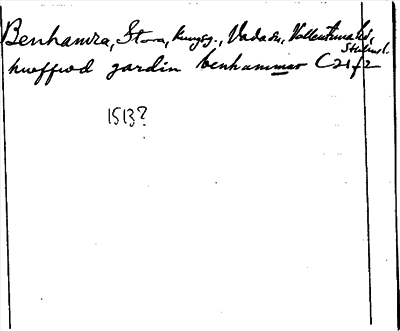 Benhamra, Stora, kungsg., Vada sn, Vallentuna hd, Stockhol.
huffwd gardin benhammar C 21 f 2
1513?